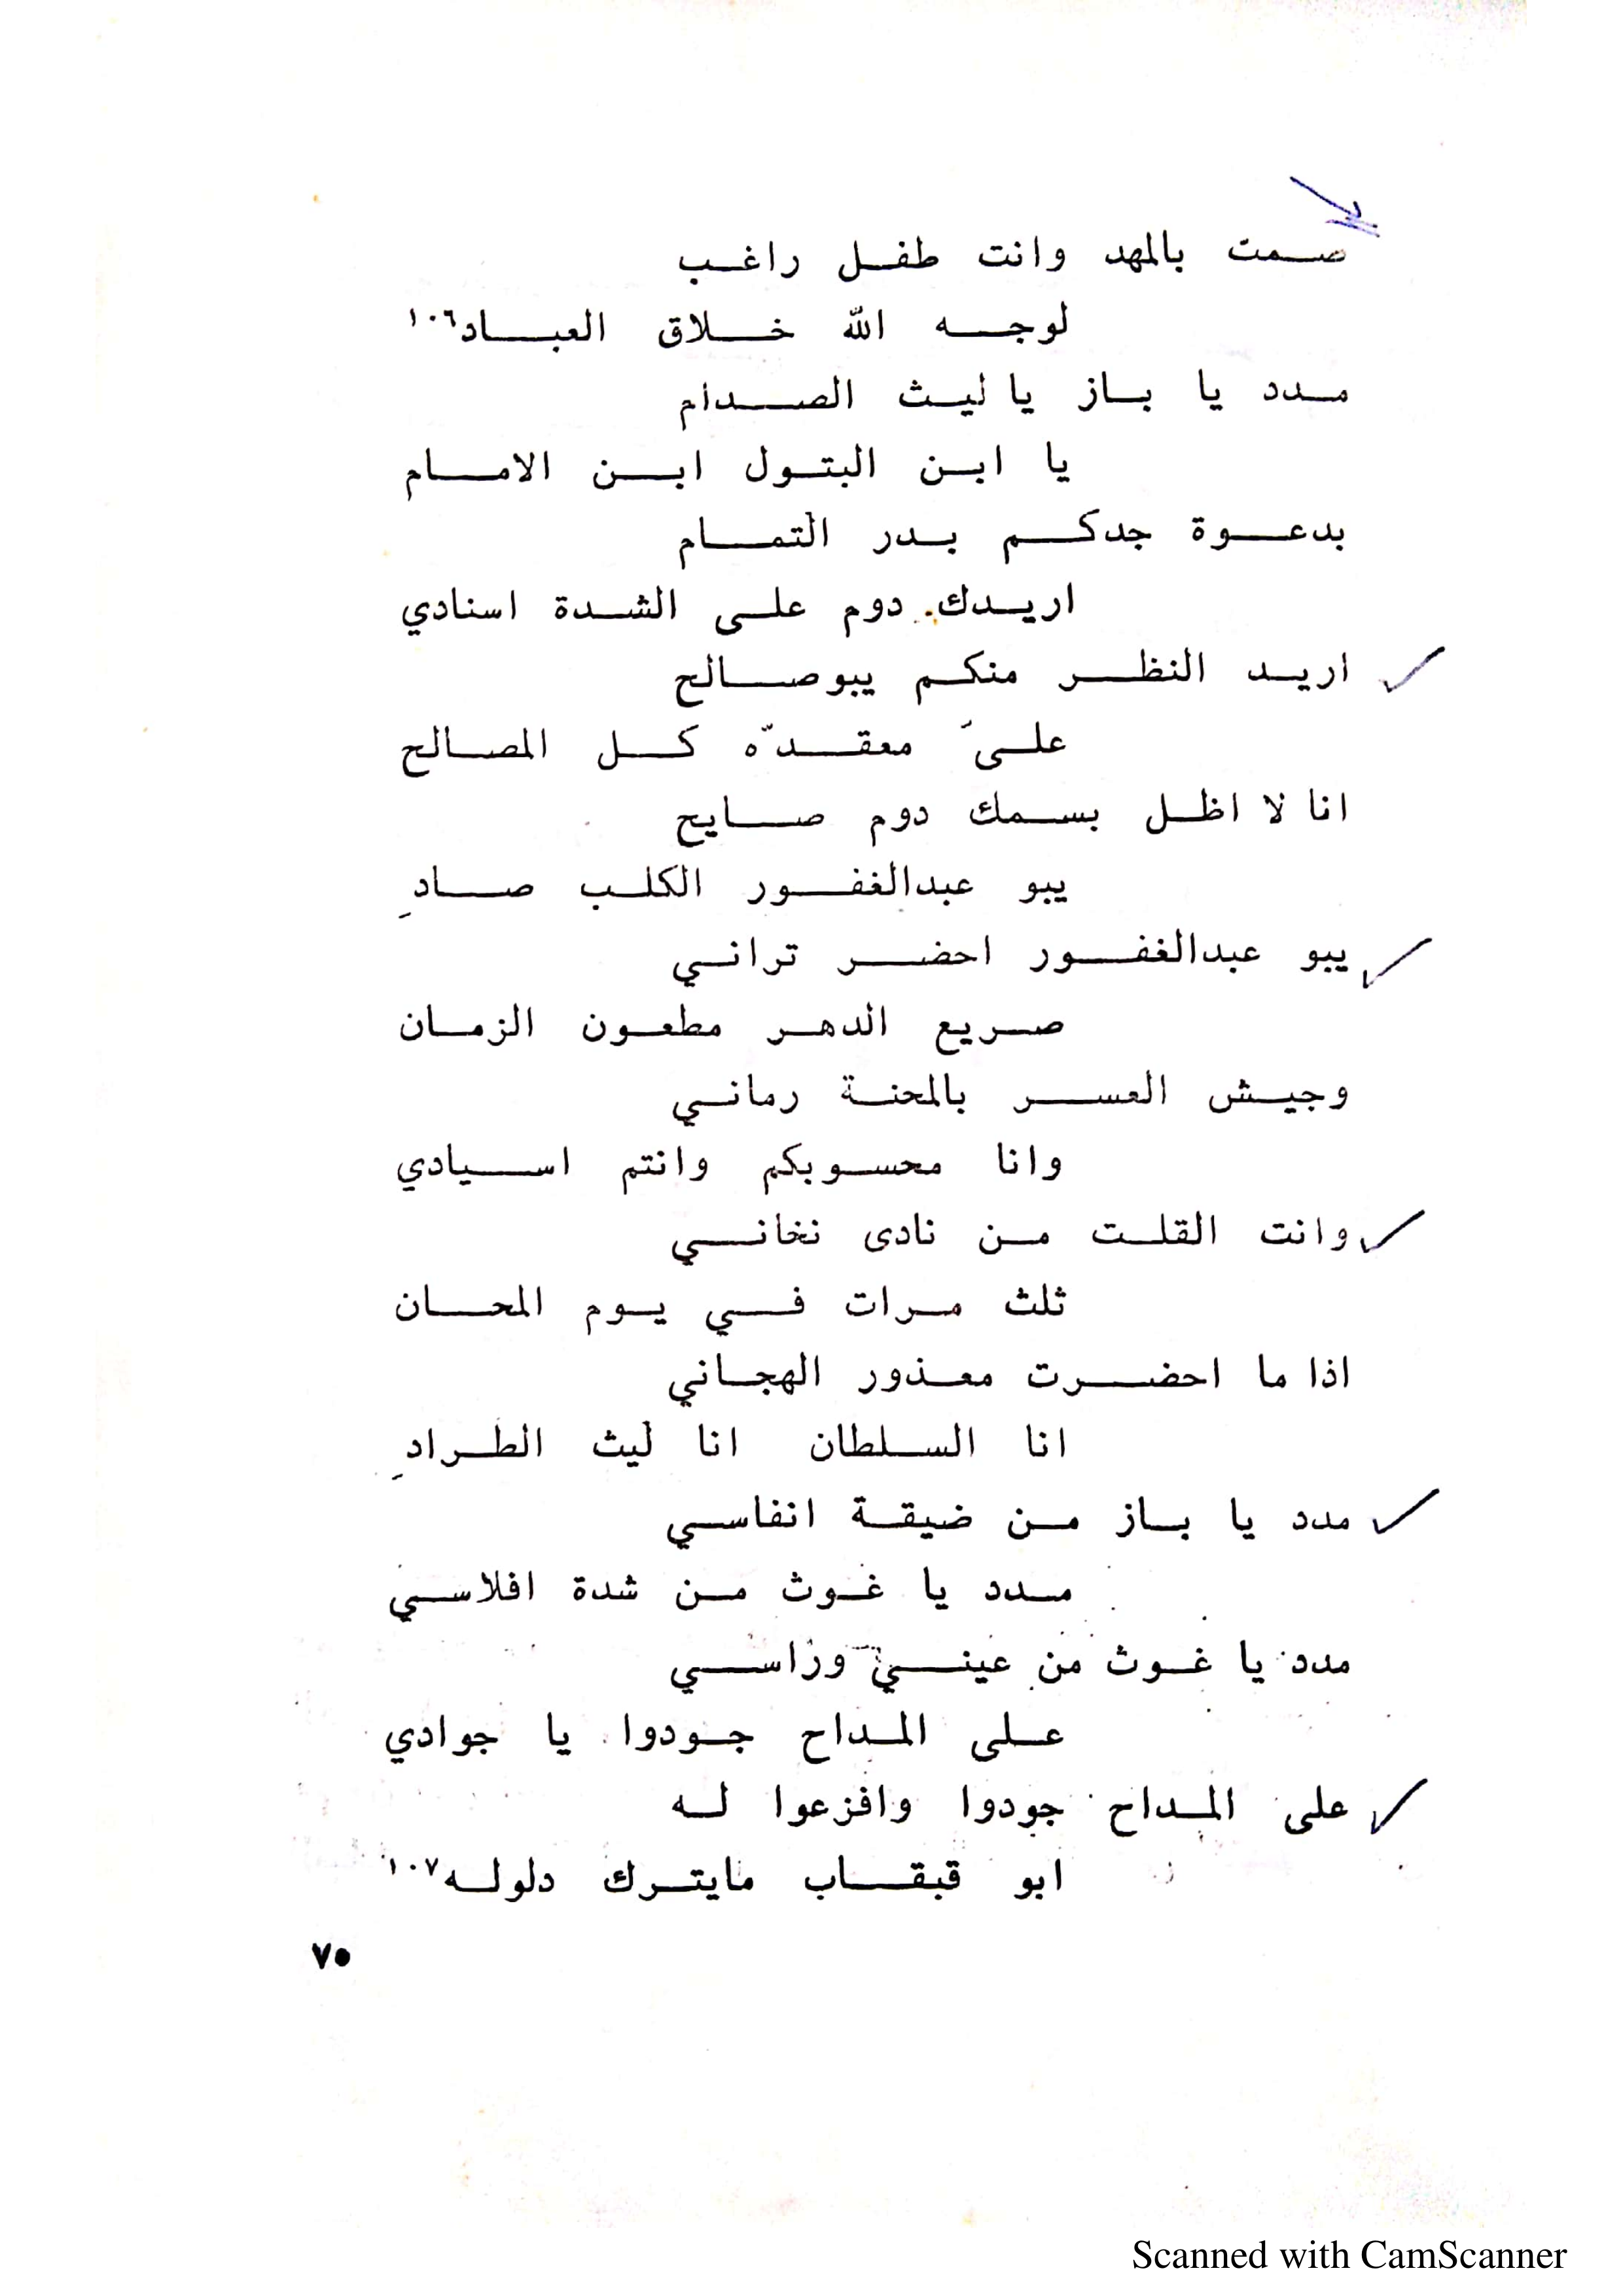 صمت بالمهد وانت طفل راغب
لوجه الله خلاق العباد١٠٦
مدد يا باز يا ليث الصدام
يا ابن البتول ابن الامام
بدعوة جدكم بدر التمام
اريدك دوم على الشدة اسنادي
اريد النظر منكم يبو صالح
عليَ معقدّه كل المصالح
انا لا اظل بسمك دوم صايح
يبو عبدالغفور الكلب صادِ
يبو عبدالغفور احضر تراني
صريع الدهر مطعون الزمان
وجيش العسر بالمحنة رماني
وانا محسوبكم وانتم اسيادي
وانت القلت من نادى نخاني
ثلث مرات في يوم المحان
اذا ما احضرت معذور الهجاني
انا السلطان انا ليث الطرادِ
مدد يا باز من ضيقة انفاسي
مدد يا غوث من شدة افلاسي
مدد يا غوث من عيني وراسي
على المداح جودوا يا جوادي
على المداح جودوا وافزعوا له
ابو قبقاب مايترك دلوله١٠٧
٧٥
Scanned with CamScanner